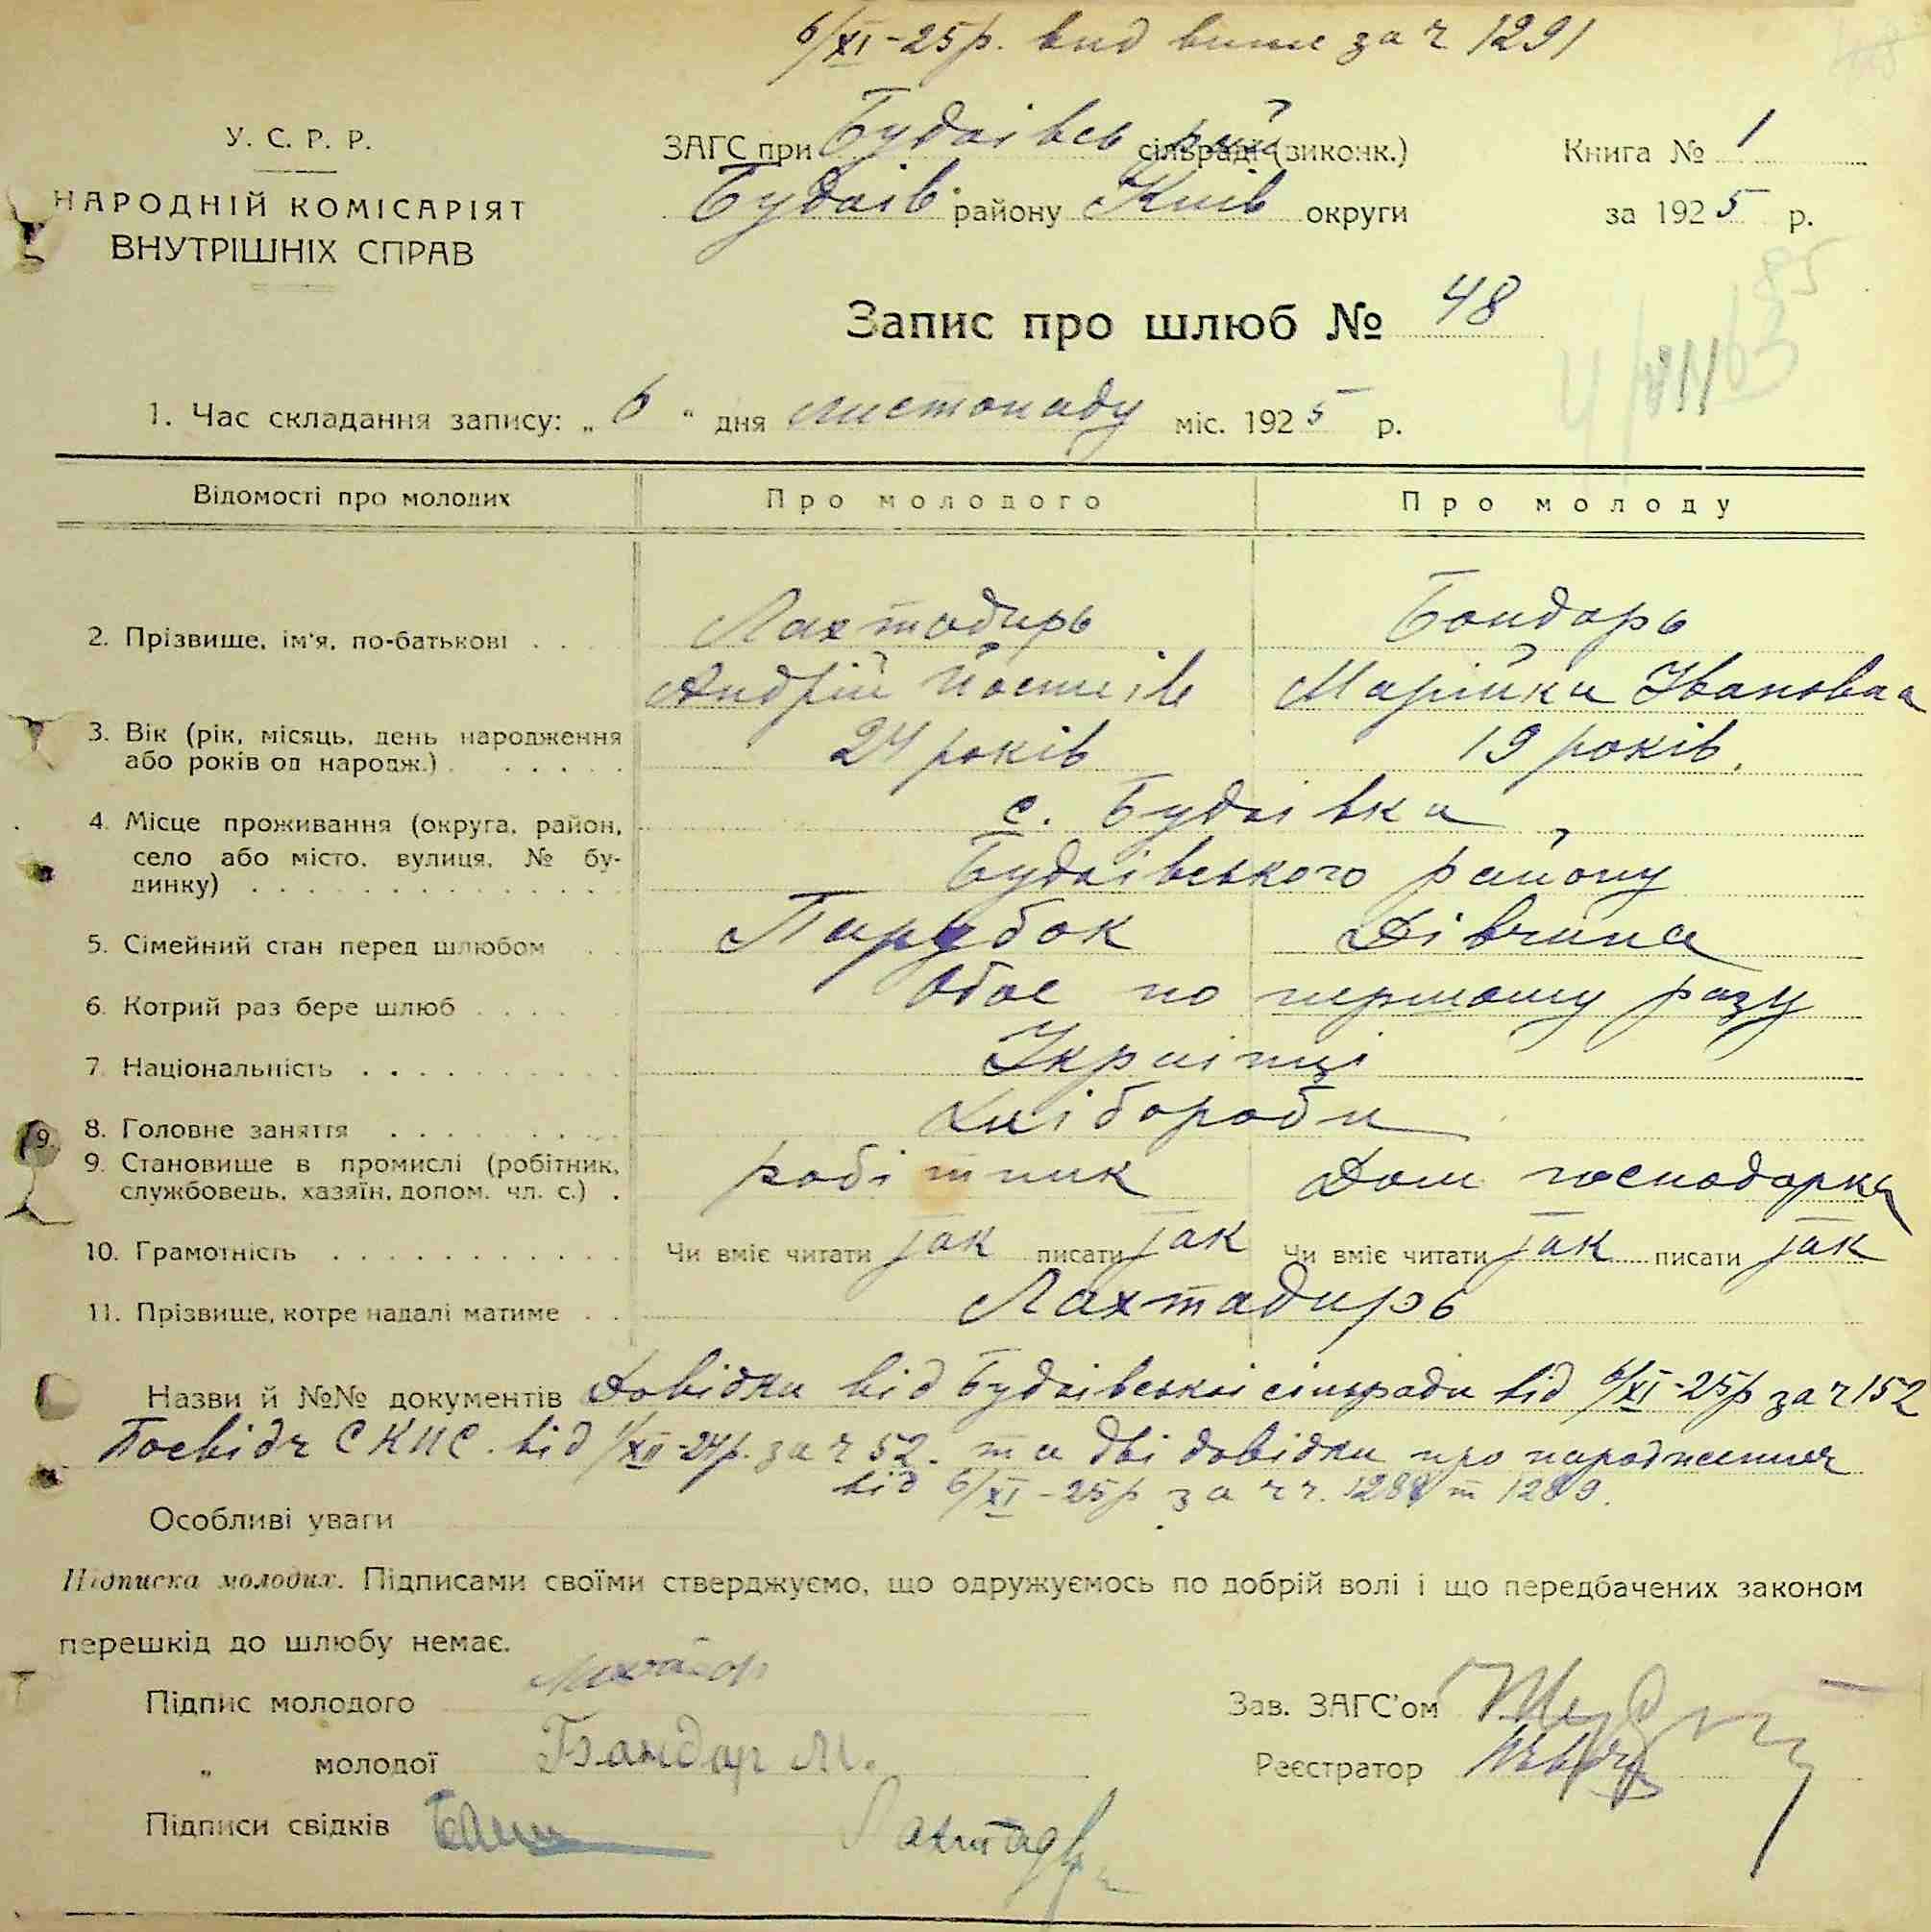 6/XI-25р. вид випис за ч 1291
У. С. Р. Р.
НАРОДНІЙ КОМІСАРІЯТ
ВНУТРІШНІХ СПРАВ
ЗАГС при Будаівсь рай сільраді (зиконк.)
Будаів. району Київ округи
Книга № 1
за 1925 р.
85
Запис про шлюб № 48
1. Час складання запису: „ 6 “ дня листопаду міс. 1925 р.
Відомості про молодих
Про молодого
Про молоду
2. Прізвище, ім'я, по-батькові . .
Лахтадирь
Андрій Йосипів
Бондарь
Марійка Івановна
3. Вік (рік, місяць, день народження
або років од народж.) . . . . . .
24 років
19 років.
4. Місце проживання (округа, район,
село або місто, вулиця, № бу-
динку) . . . . . . . . . . . . . .
с. Будаівка,
Будаівського району
5. Сімейний стан перед шлюбом . .
Парубок
Дівчина
6. Котрий раз бере шлюб . . . .
Обоє по першому разу
7. Національність . . . . . . . . . .
Украінці
8. Головне заняття . . . . . . . . .
Хлібороби
9. Становище в промислі (робітник,
службовець, хазяїн, допом. чл. с.) .
робітник
Дом господарка
10. Грамотність . . . . . . . . . . .
Чи вміє читати так писати так
Чи вміє читати так писати так
11. Прізвище, котре надалі матиме . .
Лахтадирь
Назви й №№ документів Довідки від Будаівськоі сільради від 6/XI-25р за ч 152
Посвідч СКПС. від 1/XII-24р. за ч 52. та дві довідки про народження
від 6/XI-25р за чч. 1288 т 1289.
Особливі уваги
Підписка молодих. Підписами своїми стверджуємо, що одружуємось по добрій волі і що передбачених законом
перешкід до шлюбу немає.
Підпис молодого
„ молодої Бандар М.
Підписи свідків
Лахтади
Зав. ЗАГС'ом
Реєстратор